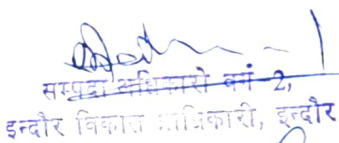 सम्पदा अधिकारी वर्ग 2,
इन्दौर विकास प्राधिकारी, इन्दौर